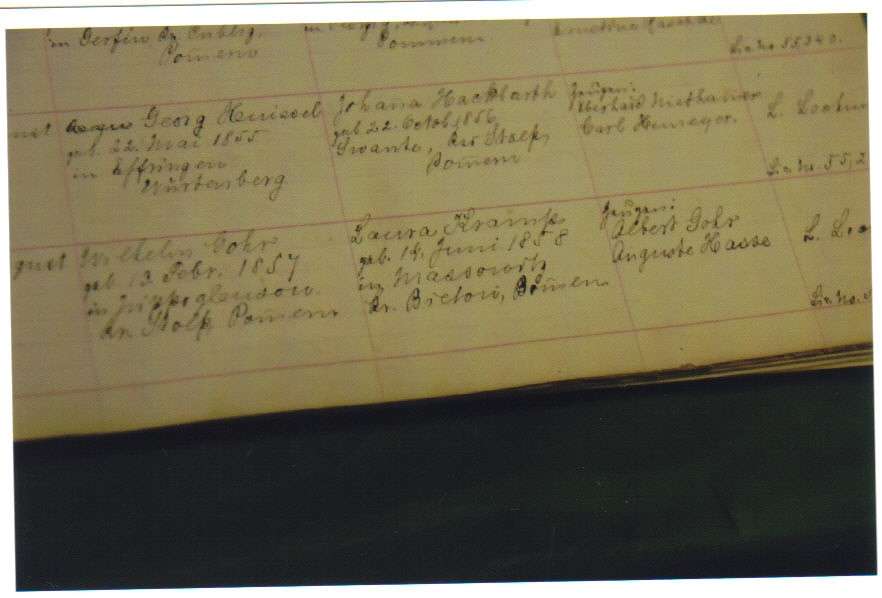 in Gerfin Kr.
Pomern
Pommern.
Lic. No. 55,340.
Georg Heuissel
geb. 22. Mai 1855
in Effringen
Würtenberg
Johana Hackbarth
geb 22. Octob, 1856,
Swante, Kr. Stolp,
Pomern
Zeugen:
Eberhard
Carl Hemeyer.
L.
Lic. No. 55,2
gust
Wilhelm Gohr
geb. 13. Febr. 1857
in
Kr. Stolp Pomern
Laura Kramp
geb. 14. Juni 1858
in Massowitz
Kr. Bietow, Pomern
Zeugen:
Albert Gohr
Auguste Hasse
L. Loo
Lic. No. 5